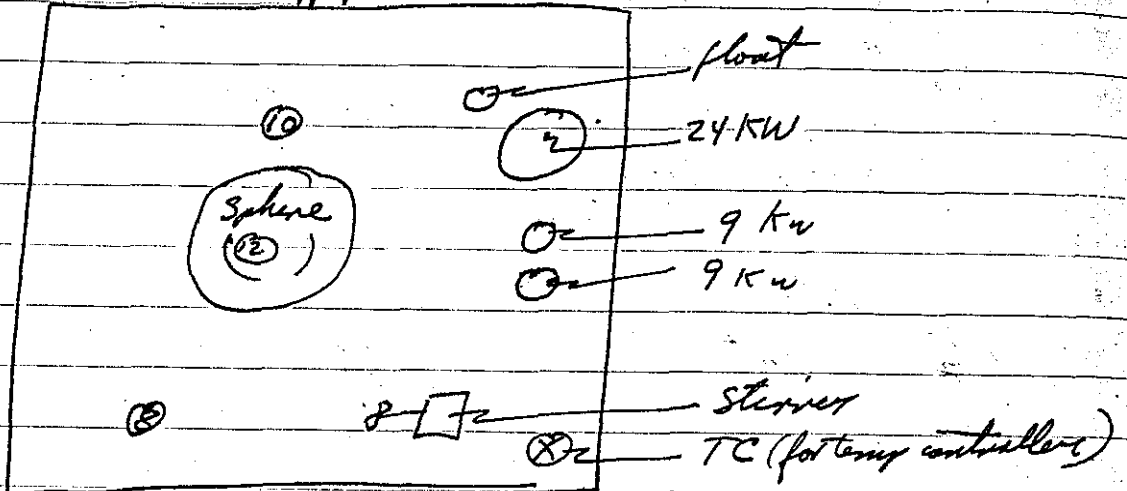 float
10
24 KW
Sphere
12
9 Kw
9 Kw
8
stirrer
X
TC (for temp controllers)